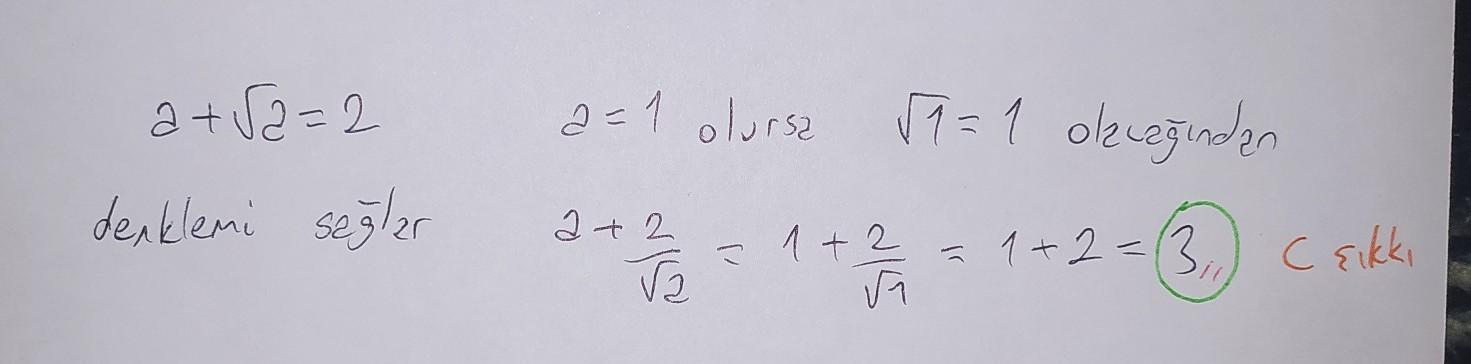 a+√a=2 a=1 olursa √1=1 olacağından
denklemi sağlar a+2/√a = 1+2/√1 = 1+2=3,, C şıkkı